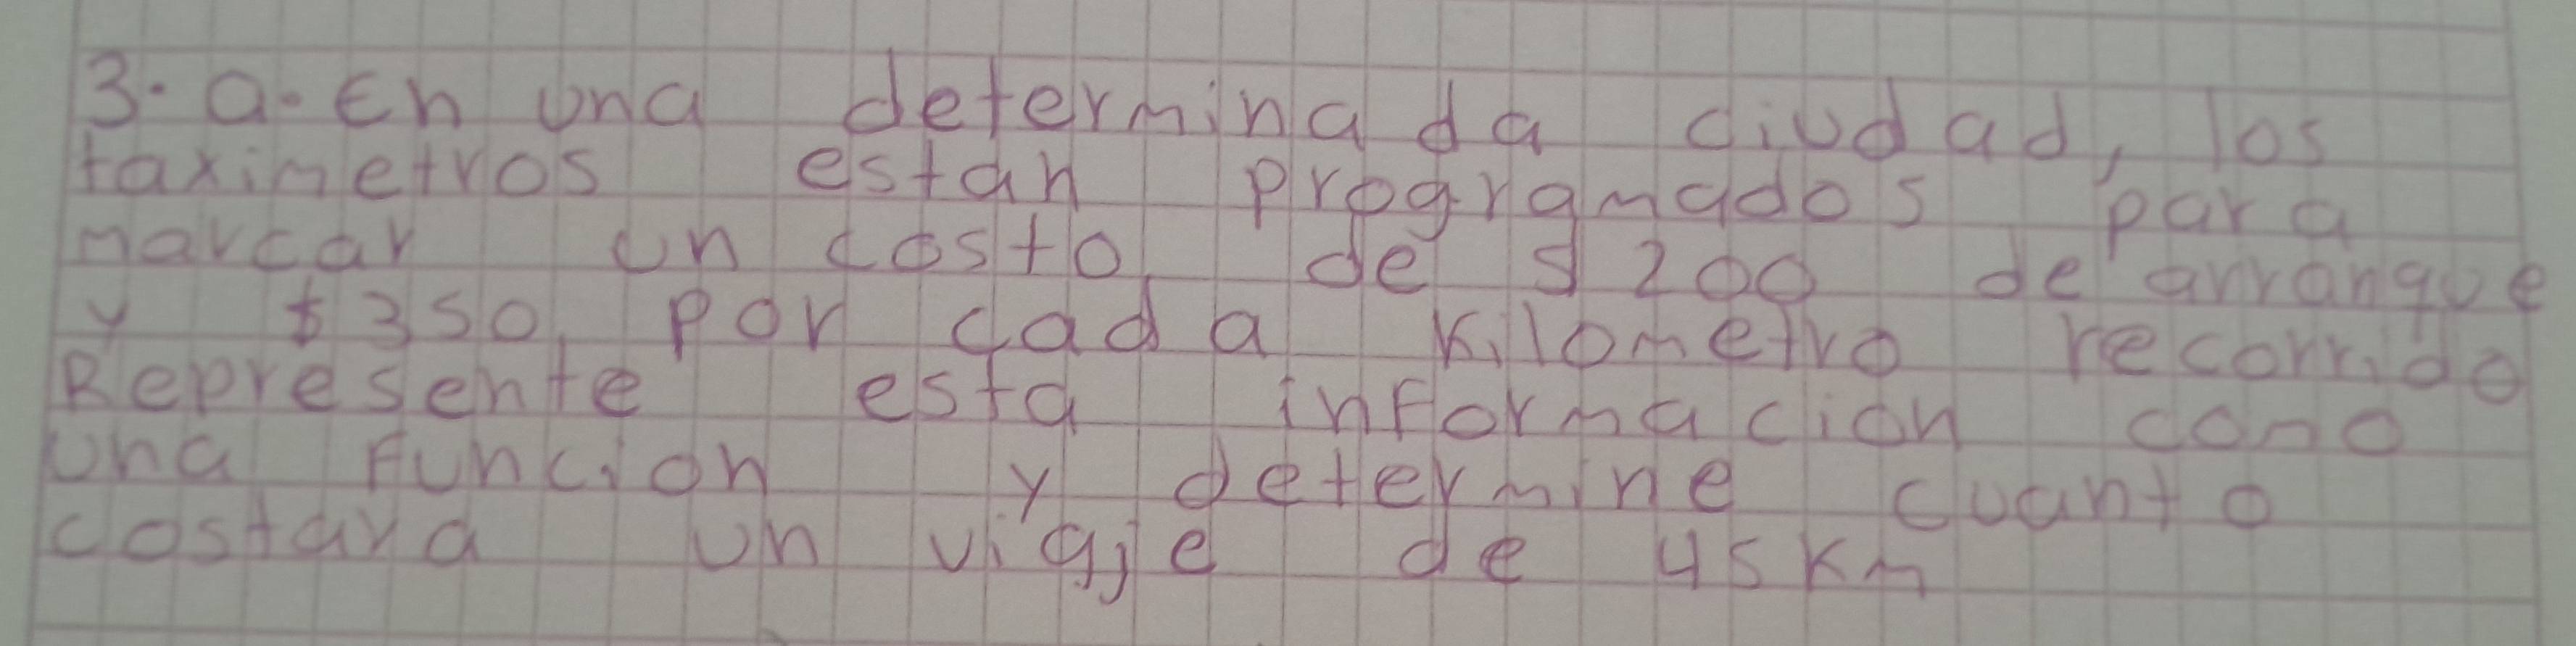 3. a. En una determinada ciudad, los
taximetros estan programados para
marcar un costo de $ 200 de arranque
y $ 350 por cada kilometro recorrido
Represente esta informacion como
una funcion y determine cuanto
costara un viaje de 45 km